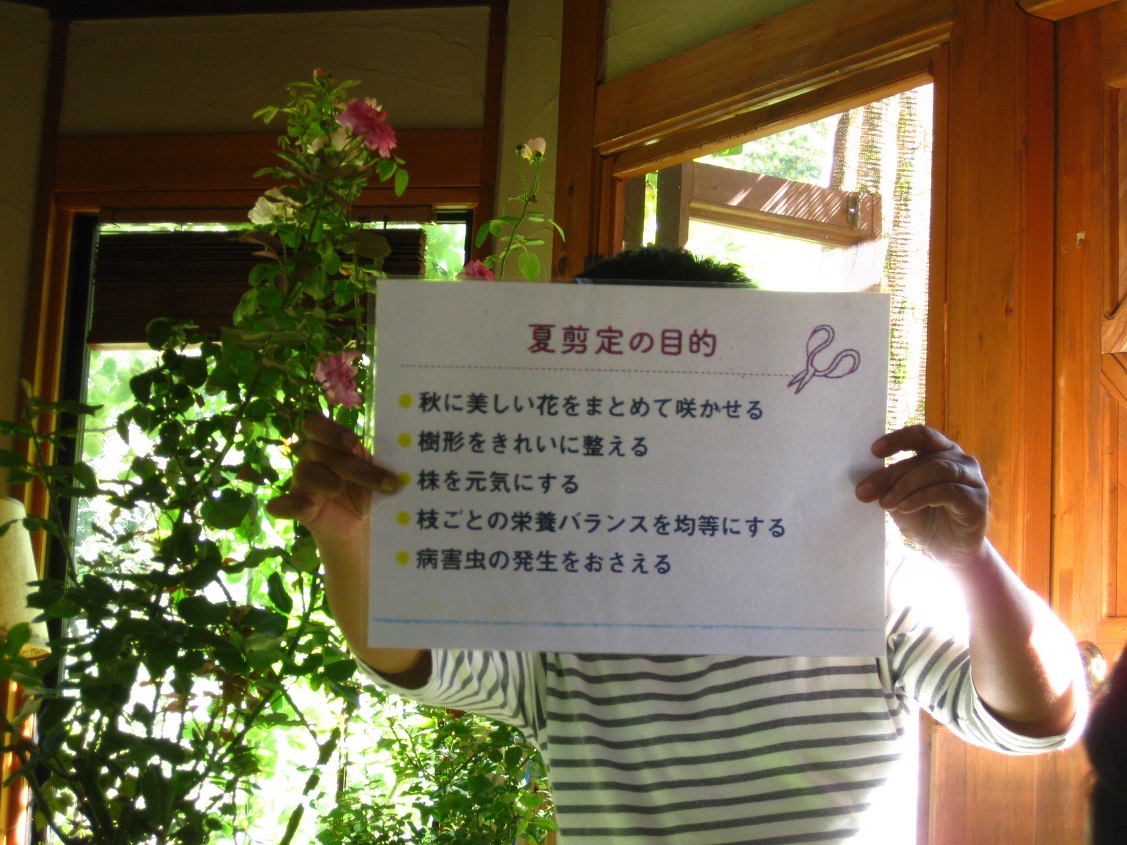 夏剪定の目的
秋に美しい花をまとめて咲かせる
樹形をきれいに整える
株を元気にする
枝ごとの栄養バランスを均等にする
病害虫の発生をおさえる